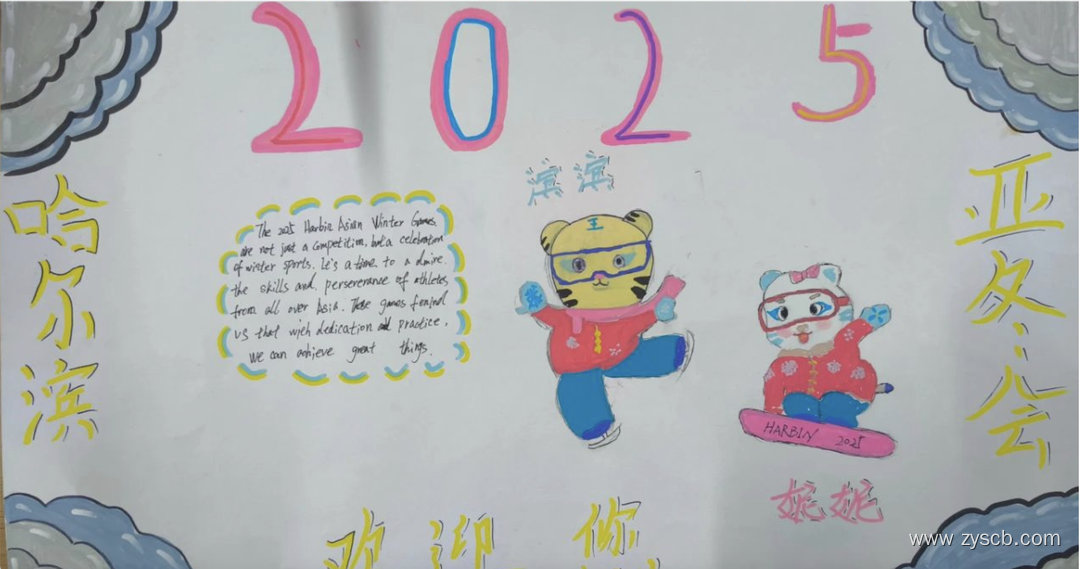 2025
哈尔滨
亚冬会
滨滨
The 2025 Harbin Asian Winter Games
are not just a competition, but a celebration
of winter sports. It's a time to admire
the skills and perserverance of athletes
from all over Asia. These games
us that with dedication and practice,
we can achieve great things.
HARBIN 2025
妮妮
欢迎你
www.zyscb.com